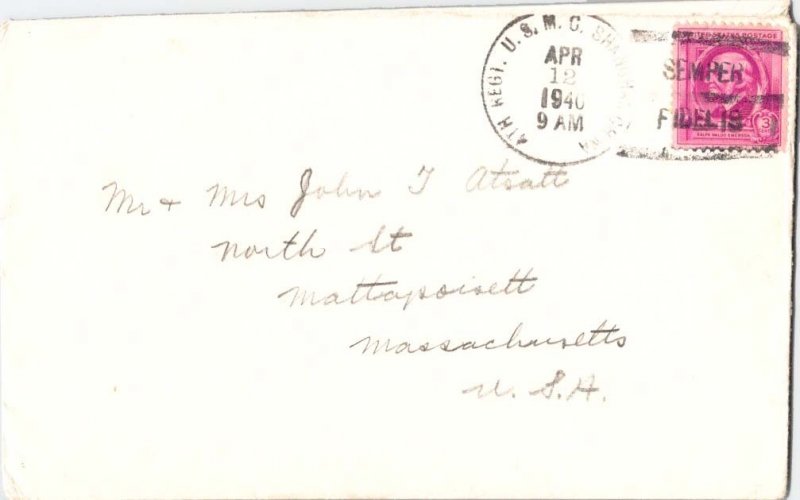 4TH REGT. U.S.M.C. SHANGHAI CHINA
APR
12
1940
9 AM
SEMPER
FIDELIS
UNITED STATES POSTAGE
3
RALPH WALDO EMERSON
Mr + Mrs John T Atsatt
North St
Mattapoisett
Massachusetts
U.S.A.